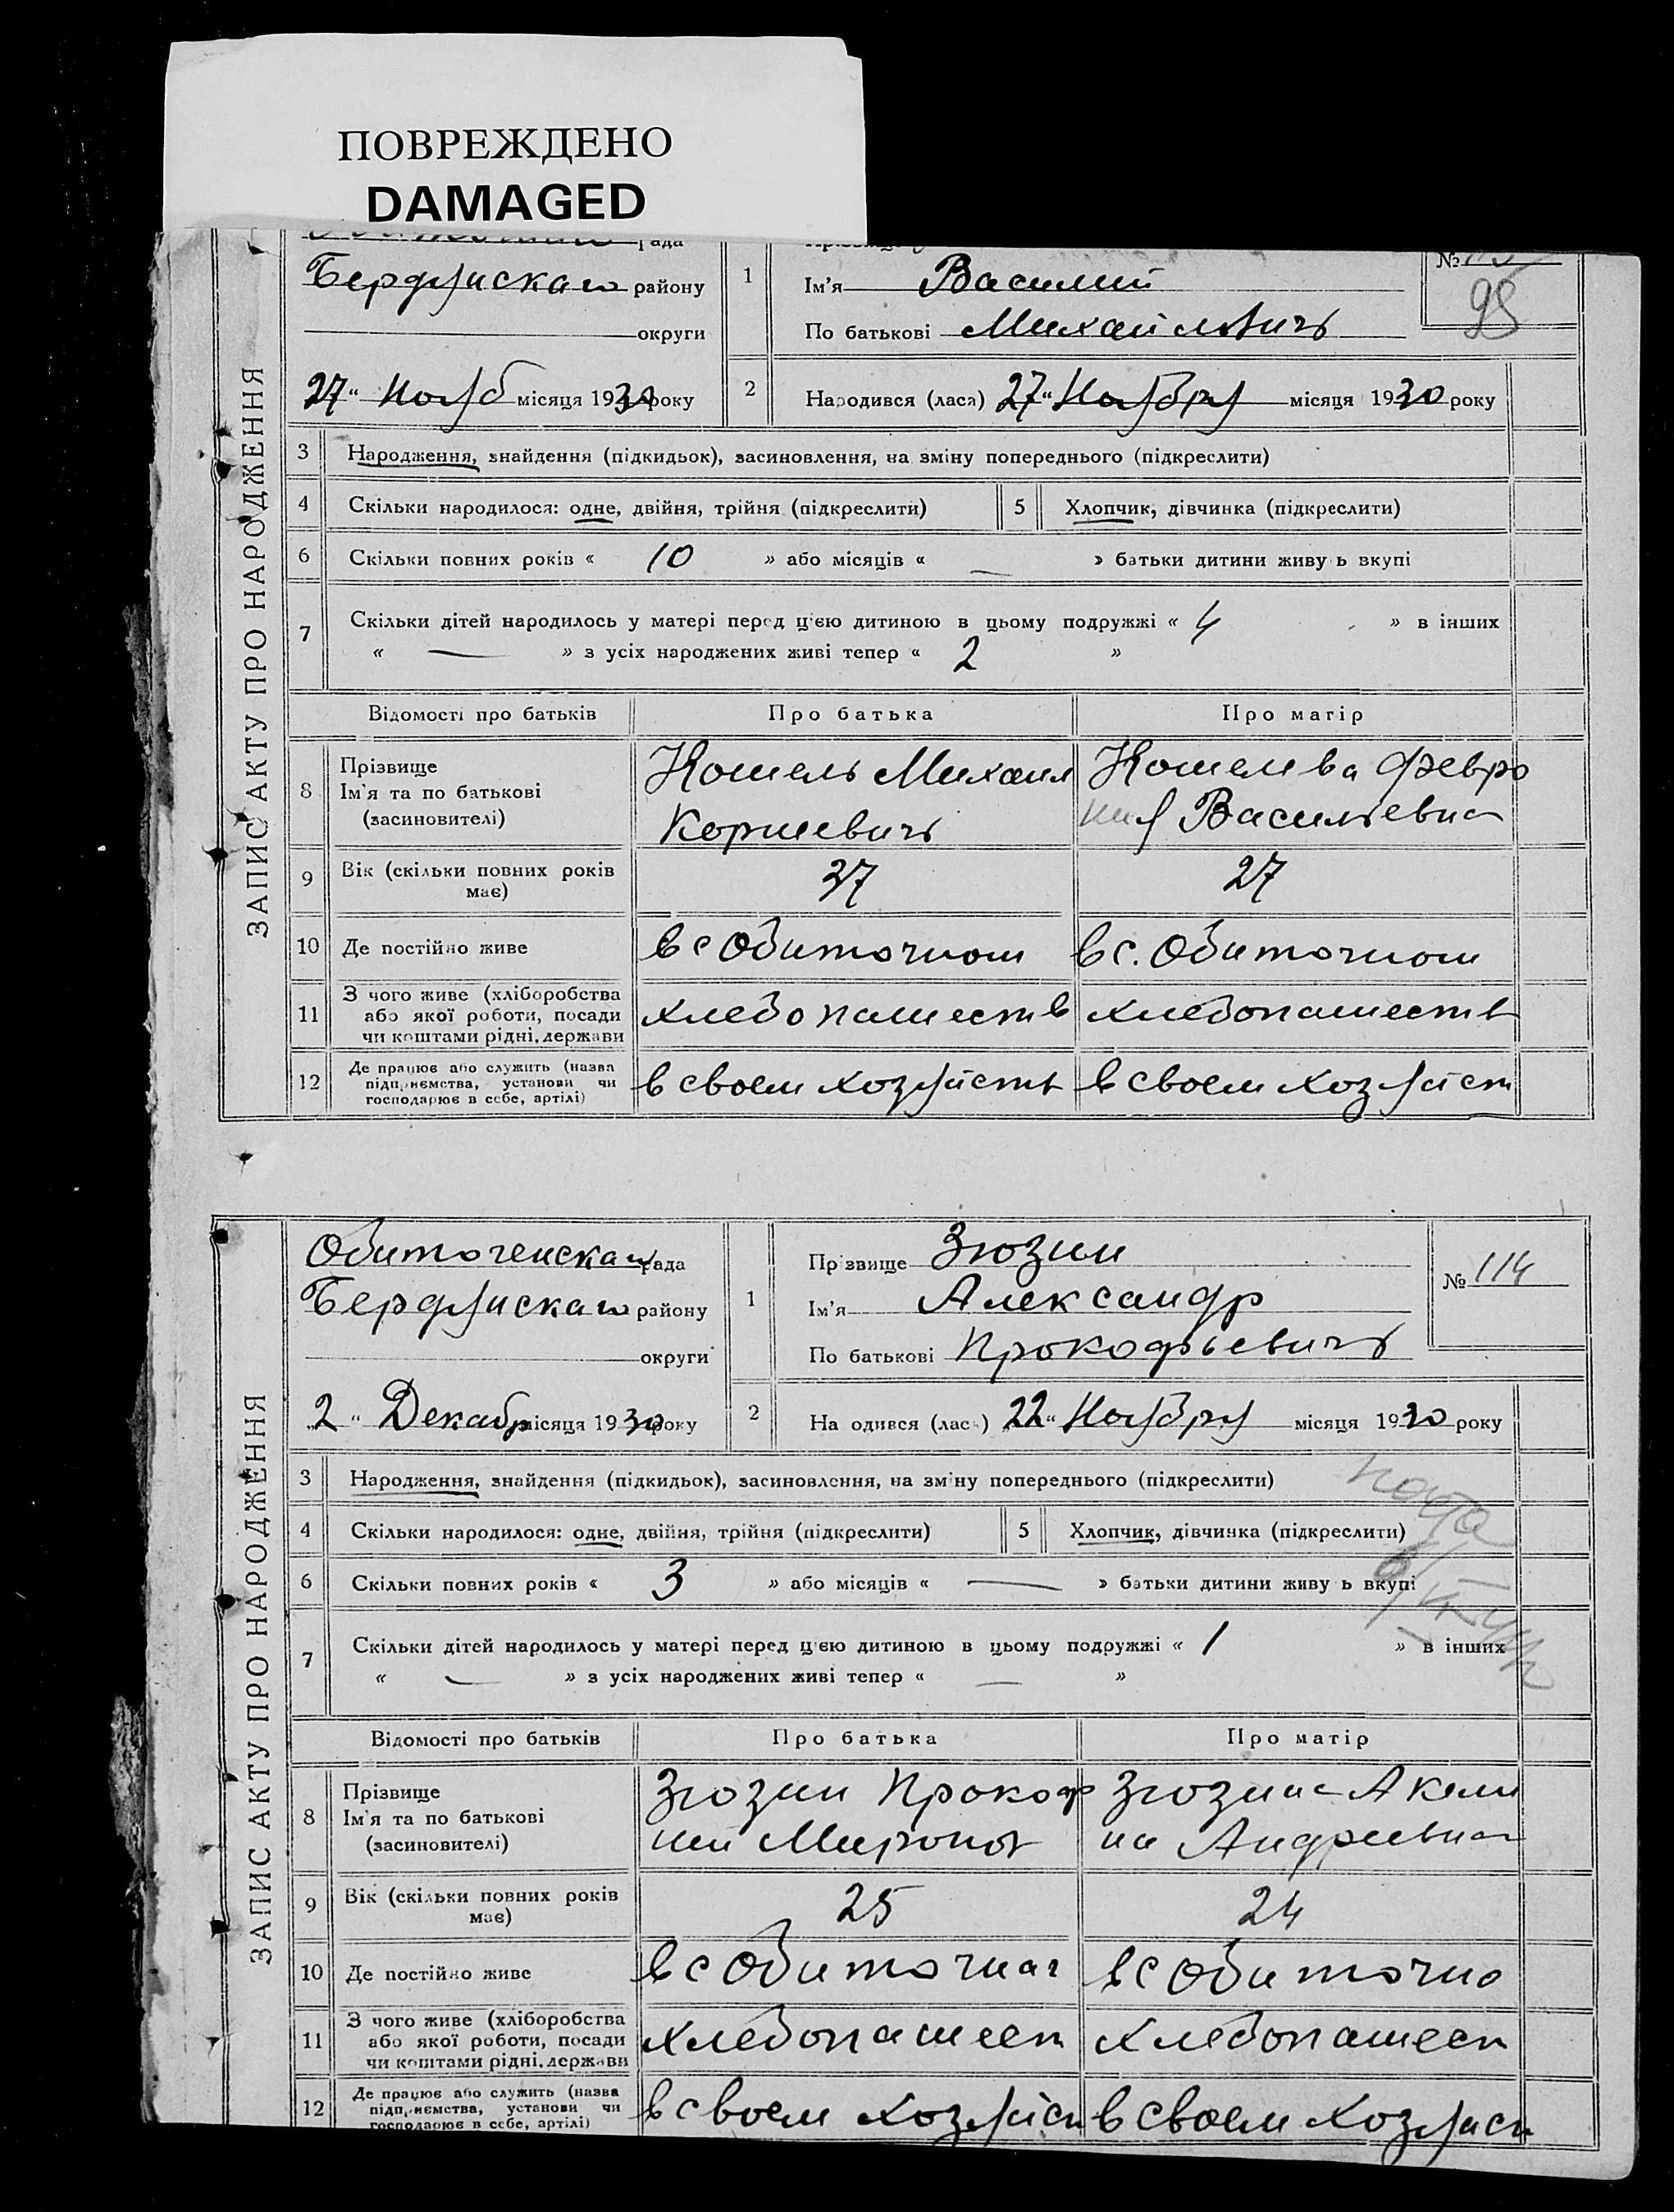 ПОВРЕЖДЕНО
DAMAGED
рада
Бердянскаго району
округи
27 " Нояб місяця 1930 року
1
Ім'я Василий
По батькові Михайлович
№
95
2 Народився (лася) 27 " Ноября місяця 1930 року
ЗАПИС АКТУ ПРО НАРОДЖЕННЯ
3 Народження, знайдення (підкидьок), засиновлення, на зміну попереднього (підкреслити)
4 Скільки народилося: одне, двійня, трійня (підкреслити) 5 Хлопчик, дівчинка (підкреслити)
6 Скільки повних років « 10 » або місяців « — » батьки дитини живу ь вкупі
7 Скільки дітей народилось у матері перед ц'єю дитиною в цьому подружжі « 4 » в інших
« — » з усіх народжених живі тепер « 2 »
Відомості про батьків Про батька Про матір
8 Прізвище
Ім'я та по батькові
(засиновителі)
Кошель Михаил
Корнеевичъ
Кошелева Февро
ния Васильевна
9 Вік (скільки повних років
має)
37 27
10 Де постійно живе в с Обиточном в с. Обиточном
11 З чого живе (хліборобства
або якої роботи, посади
чи коштами рідні, держави
хлебопашеств хлебопашеств
12 Де працює або служить (назва
підприємства, установи чи
господарює в себе, артілі)
в своем хозяйств в своем хозяйст
Обиточенская рада
Бердянскаго району
округи
„2 " Декабр місяця 1930 року
1
Пр звище Зюзин
Ім'я Александр
По батькові Прокофьевичъ
№ 114
2 На одився (лас ) „22 " Ноября місяця 1930 року
ЗАПИС АКТУ ПРО НАРОДЖЕННЯ
3 Народження, знайдення (підкидьок), засиновлення, на зм ну попереднього (підкреслити)
4 Скільки народилося: одне, двійня, трійня (підкреслити) 5 Хлопчик, дівчинка (підкреслити)
6 Скільки повних років « 3 » або місяців « — » батьки дитини живу ь вкупі
7 Скільки дітей народилось у матері перед ц'єю дитиною в цьому подружжі « 1 » в інших
« — » з усіх народжених живі тепер « — »
Відомості про батьків Про батька Про матір
8 Прізвище
Ім'я та по батькові
(засиновителі)
Зюзин Прокоф
ий Миронов
Зюзина Акели
на Андреевна
9 Вік (скільки повних років
має)
25 24
10 Де постійно живе в с Обиточна в с Обиточно
11 З чого живе (хліборобства
або якої роботи, посади
чи коштами рідні, держави
хлебопашест хлебопашест
12 Де працює або служить (назва
підприємства, установи чи
господарює в себе, артілі)
в своем хозяйст в своем хозяйст